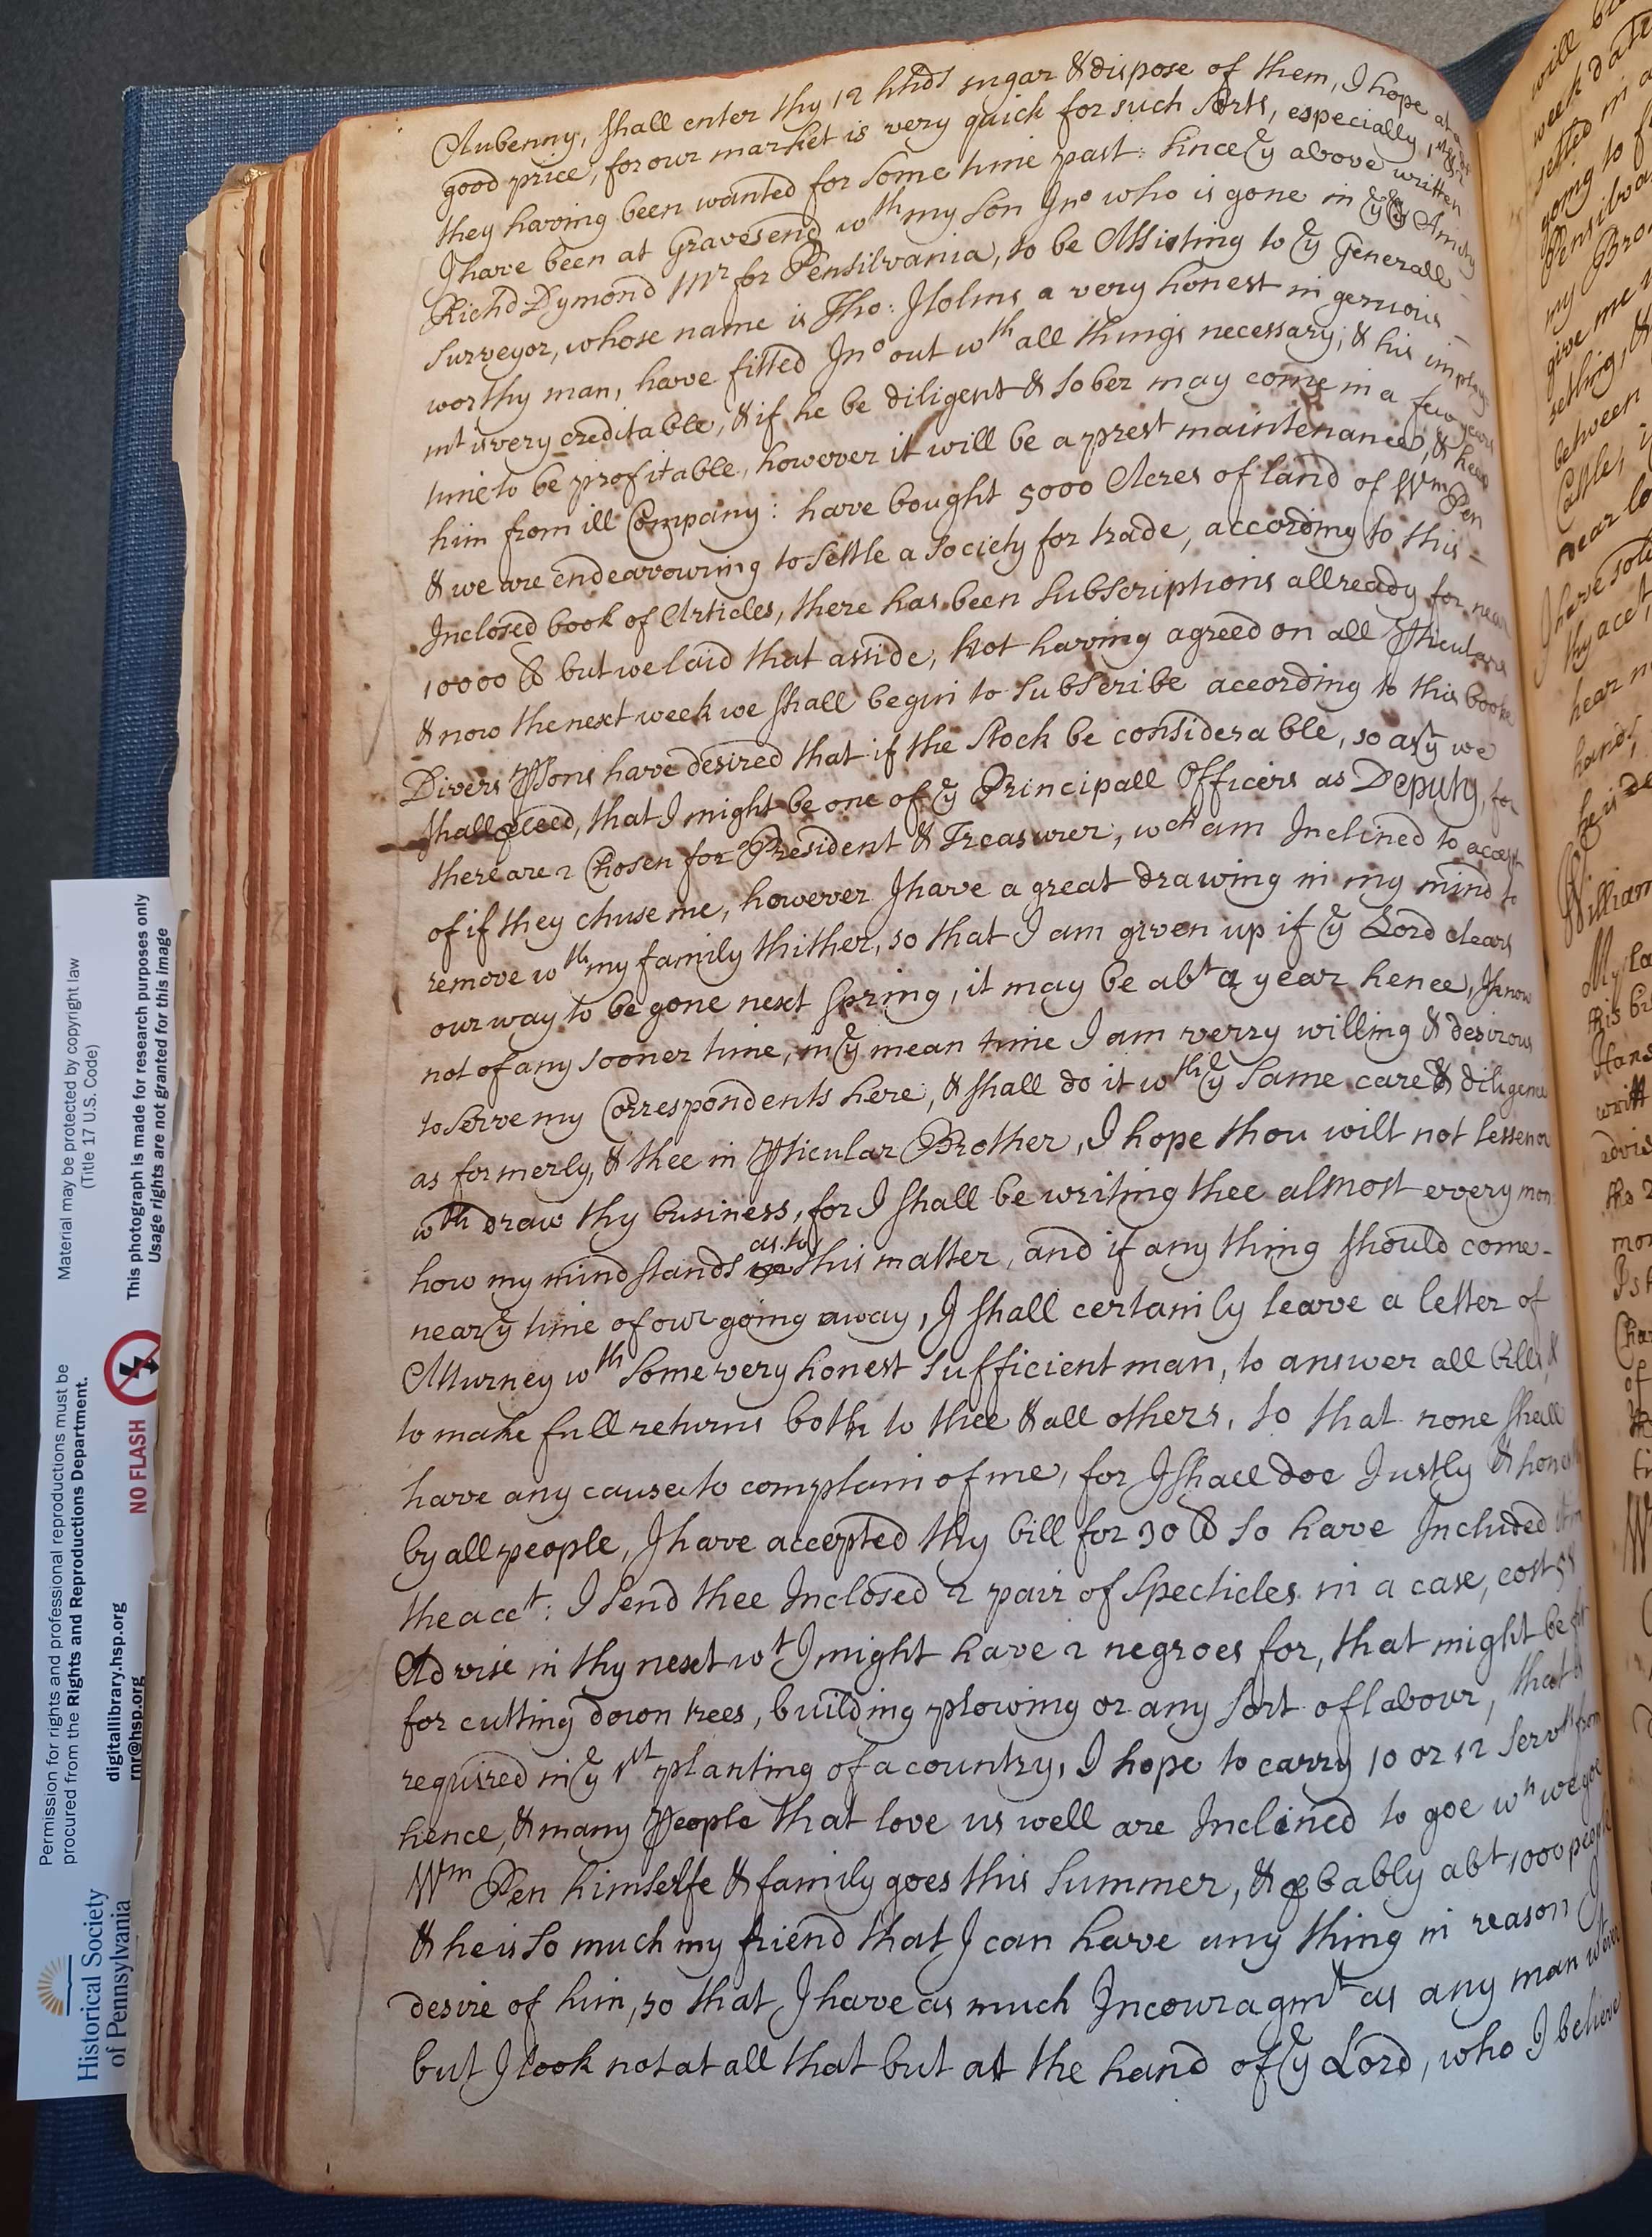 Aubenny, shall enter thy 12 hhds sugar & dispose of them, I hope at a
good price, for our market is very quick for such sorts, especially
they having been wanted for some time past: since ye above written
I have been at Gravesend wth my son Jno who is gone in ye Amity
Richd Dymond Mr for Pensilvania, to be Assisting to ye Generall
Surveyor, whose name is Tho: Holms a very honest ingenious
worthy man, have fitted Jno out wth all things necessary; & his imploy
mt is very creditable, & if he be diligent & sober may come in a few years
time to be profitable, however it will be a prest maintenance, & keep
him from ill Company: have bought 5000 Acres of land of Wm Pen
& we are endeavouring to settle a society for trade, according to this
Inclosed book of Articles, there has been subscriptions allready for near
10000 £ but we laid that asside, not having agreed on all pticulars
& now the next week we shall begin to subscribe according to this booke
Divers psons have desired that if the stock be considerable, so as yt we
shall pceed, that I might be one of ye Principall Officers as Deputy, for
there are 2 Chosen for President & Treasurer, wch am Inclined to accept
of if they chuse me, however I have a great drawing in my mind to
remove wth my family thither, so that I am given up if ye Lord clears
our way to be gone next Spring, it may be abt a year hence, I know
not of any sooner time, in ye mean time I am verry willing & desirous
to serve my Correspondents here, & shall do it wth ye same care & diligence
as formerly, & thee in pticular Brother, I hope thou wilt not lessen or
wth draw thy business, for I shall be writing thee almost every mon
how my mind stands as to this matter, and if any thing should come
near ye time of our going away, I shall certainly leave a letter of
Atturney wth some very honest sufficient man, to answer all bills &
to make full returns both to thee & all others, so that none shall
have any cause to complain of me, for I shall doe Justly & honestly
by all people, I have accepted thy bill for 30 £ so have Included
the acct: I send thee Inclosed 2 pair of specticles in a case, cost
Advise in thy next wt I might have 2 negroes for, that might be fit
for cutting down trees, building plowing or any sort of labour, that is
required in ye 1st planting of a country, I hope to carry 10 or 12 servts from
hence, & many people that love us well are Inclined to goe wn we goe
Wm Pen himselfe & family goes this summer, & pbably abt 1000 people
& he is so much my friend that I can have any thing in reason I
desire of him, so that I have as much Incouragmt as any man
but I look not at all that but at the hand of ye Lord, who I believe
Historical Society
of Pennsylvania
Permission for rights and professional reproductions must be
procured from the Rights and Reproductions Department.
digitallibrary.hsp.org
rnr@hsp.org
NO FLASH
Material may be protected by copyright law
(Title 17 U.S. Code)
This photograph is made for research purposes only
Usage rights are not granted for this image
week date
going to
my Bro
give me
between
Castle,
near
I have sold
thy acct
hear
hands
he is
William
My
his
writt
advi